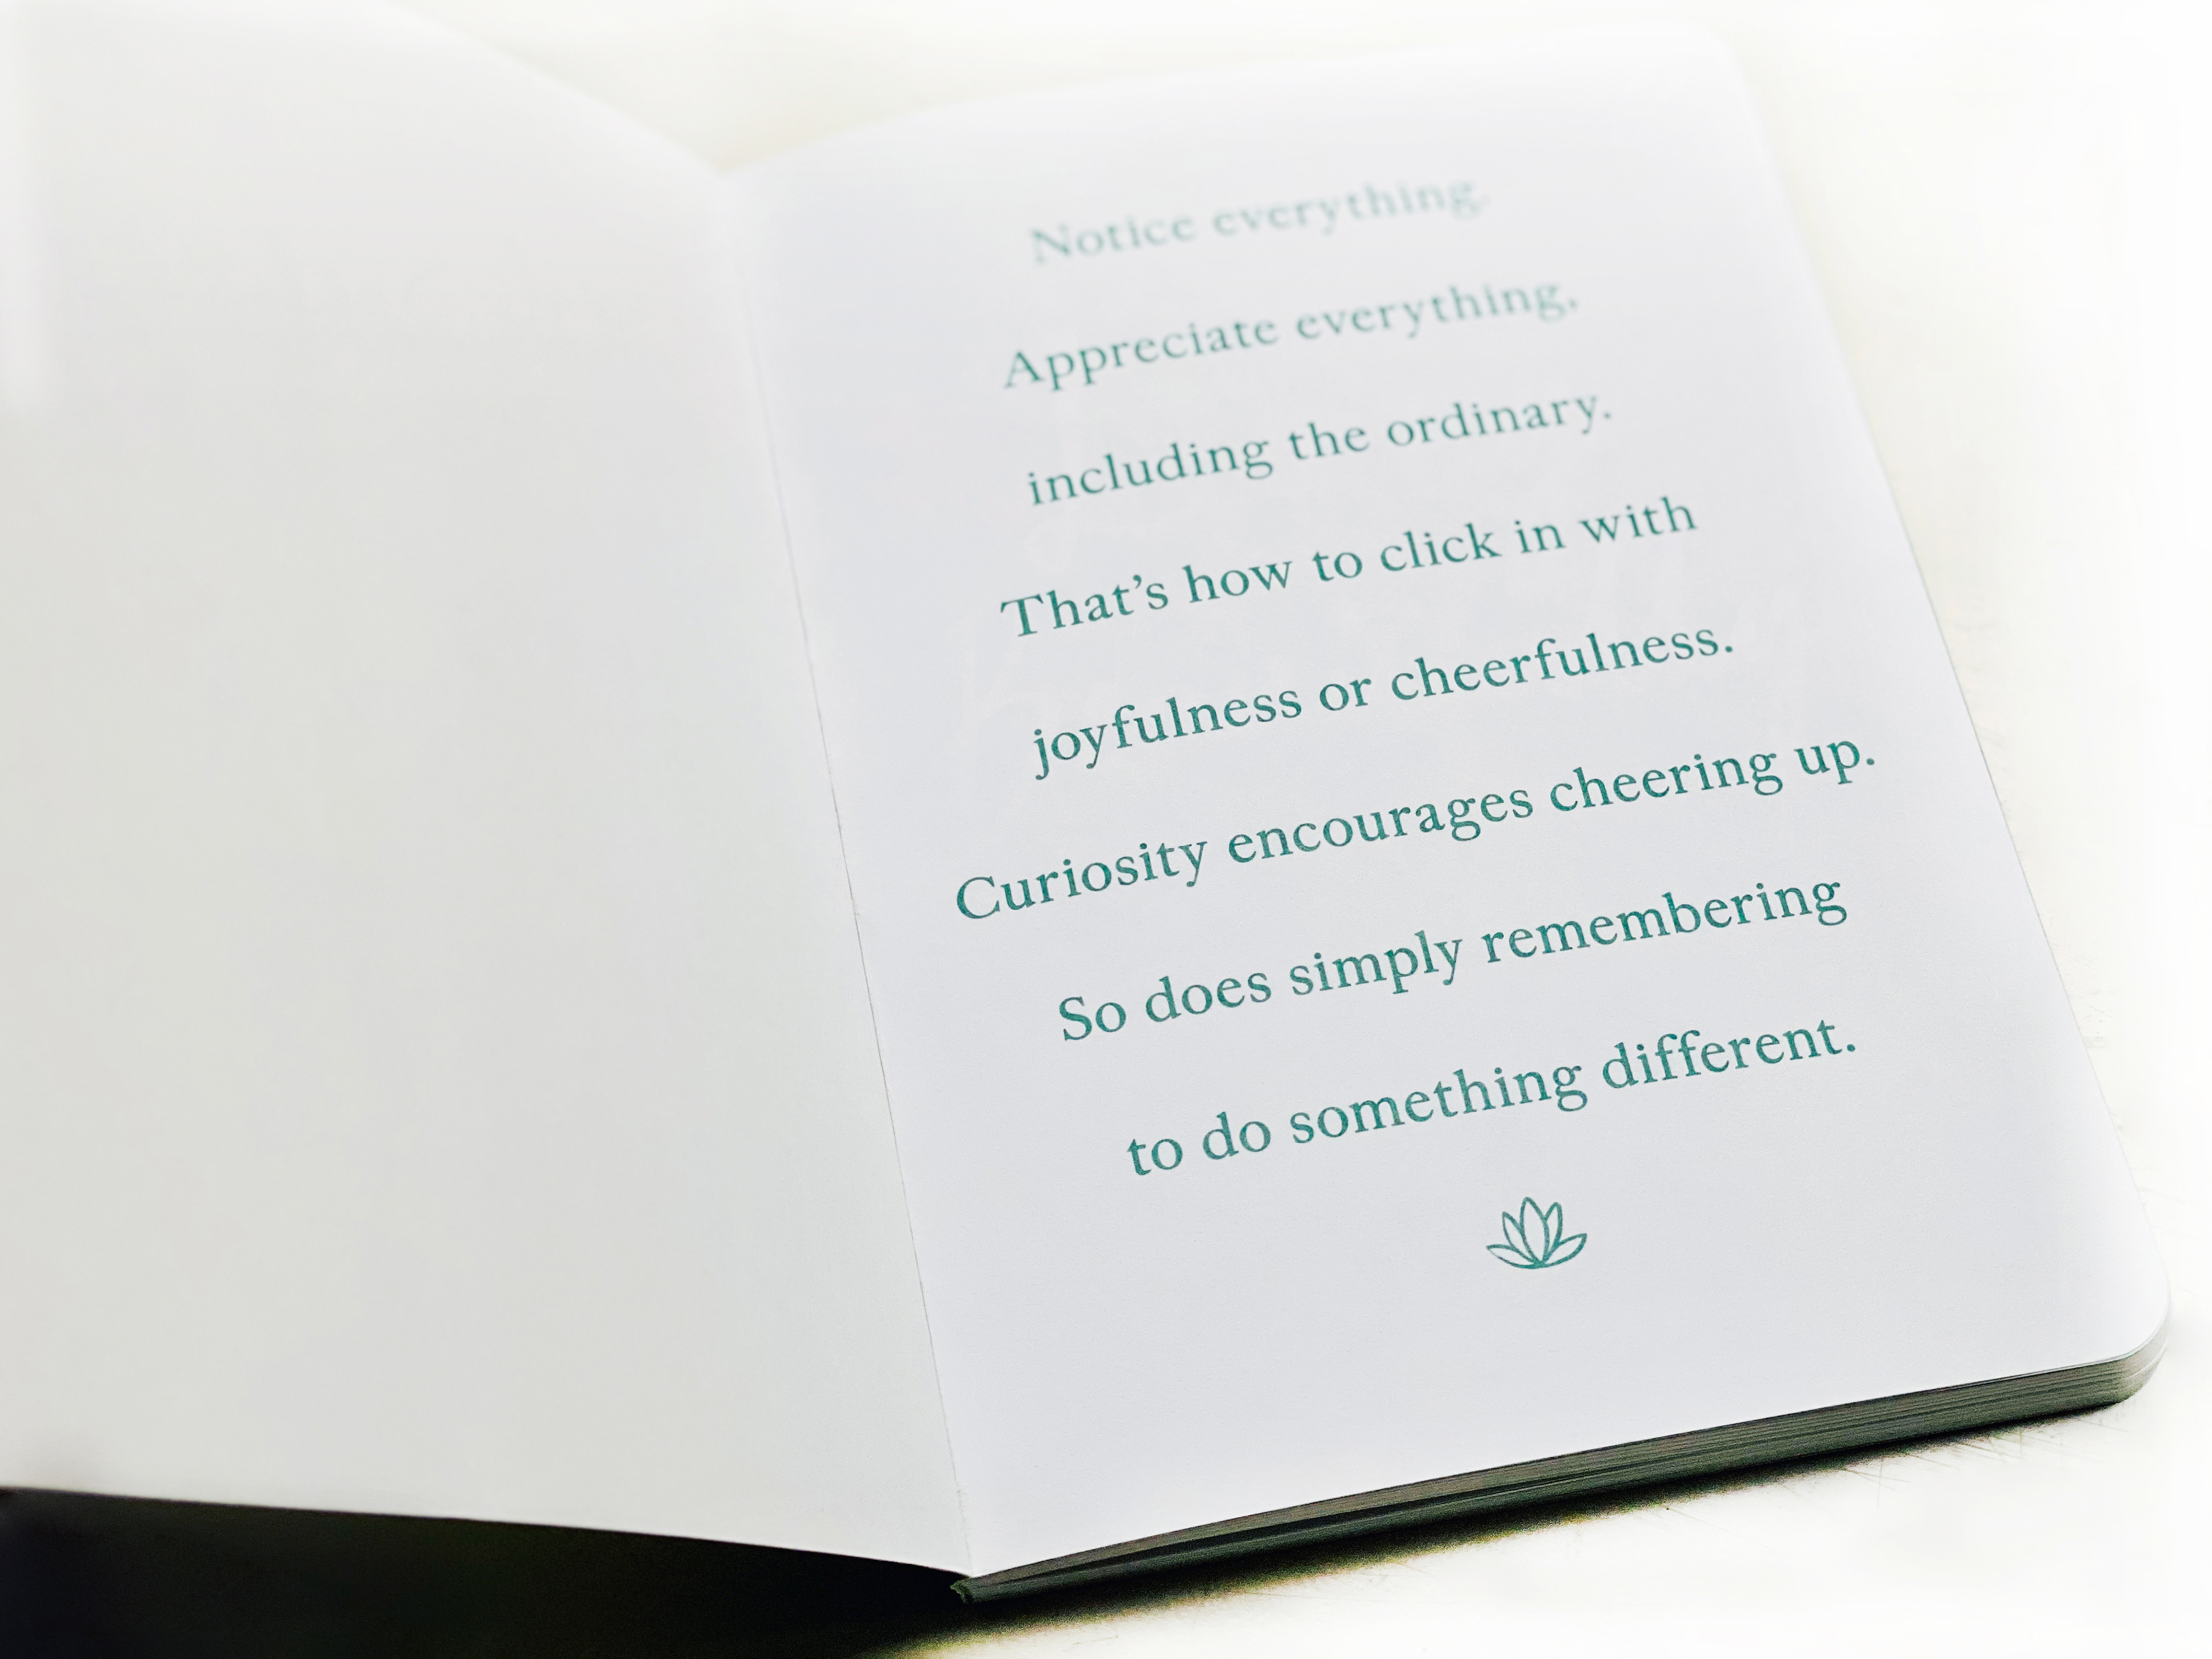 Notice everything.
Appreciate everything,
including the ordinary.
That’s how to click in with
joyfulness or cheerfulness.
Curiosity encourages cheering up.
So does simply remembering
to do something different.